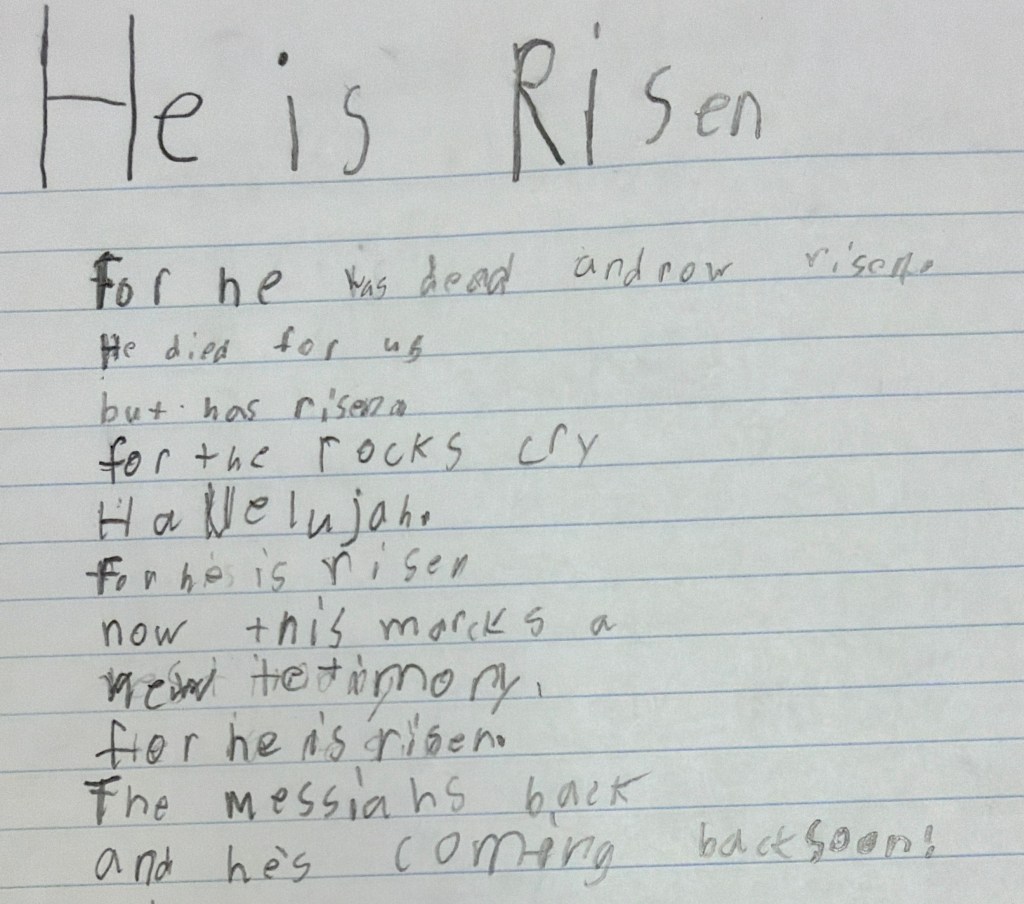 He is Risen
For he was dead and now risen.
He died for us
but has risen.
for the rocks cry
Hallelujah.
For he is risen
now this marcks a
new tetimony.
for he is risen.
The messiahs back
and he's coming back soon!